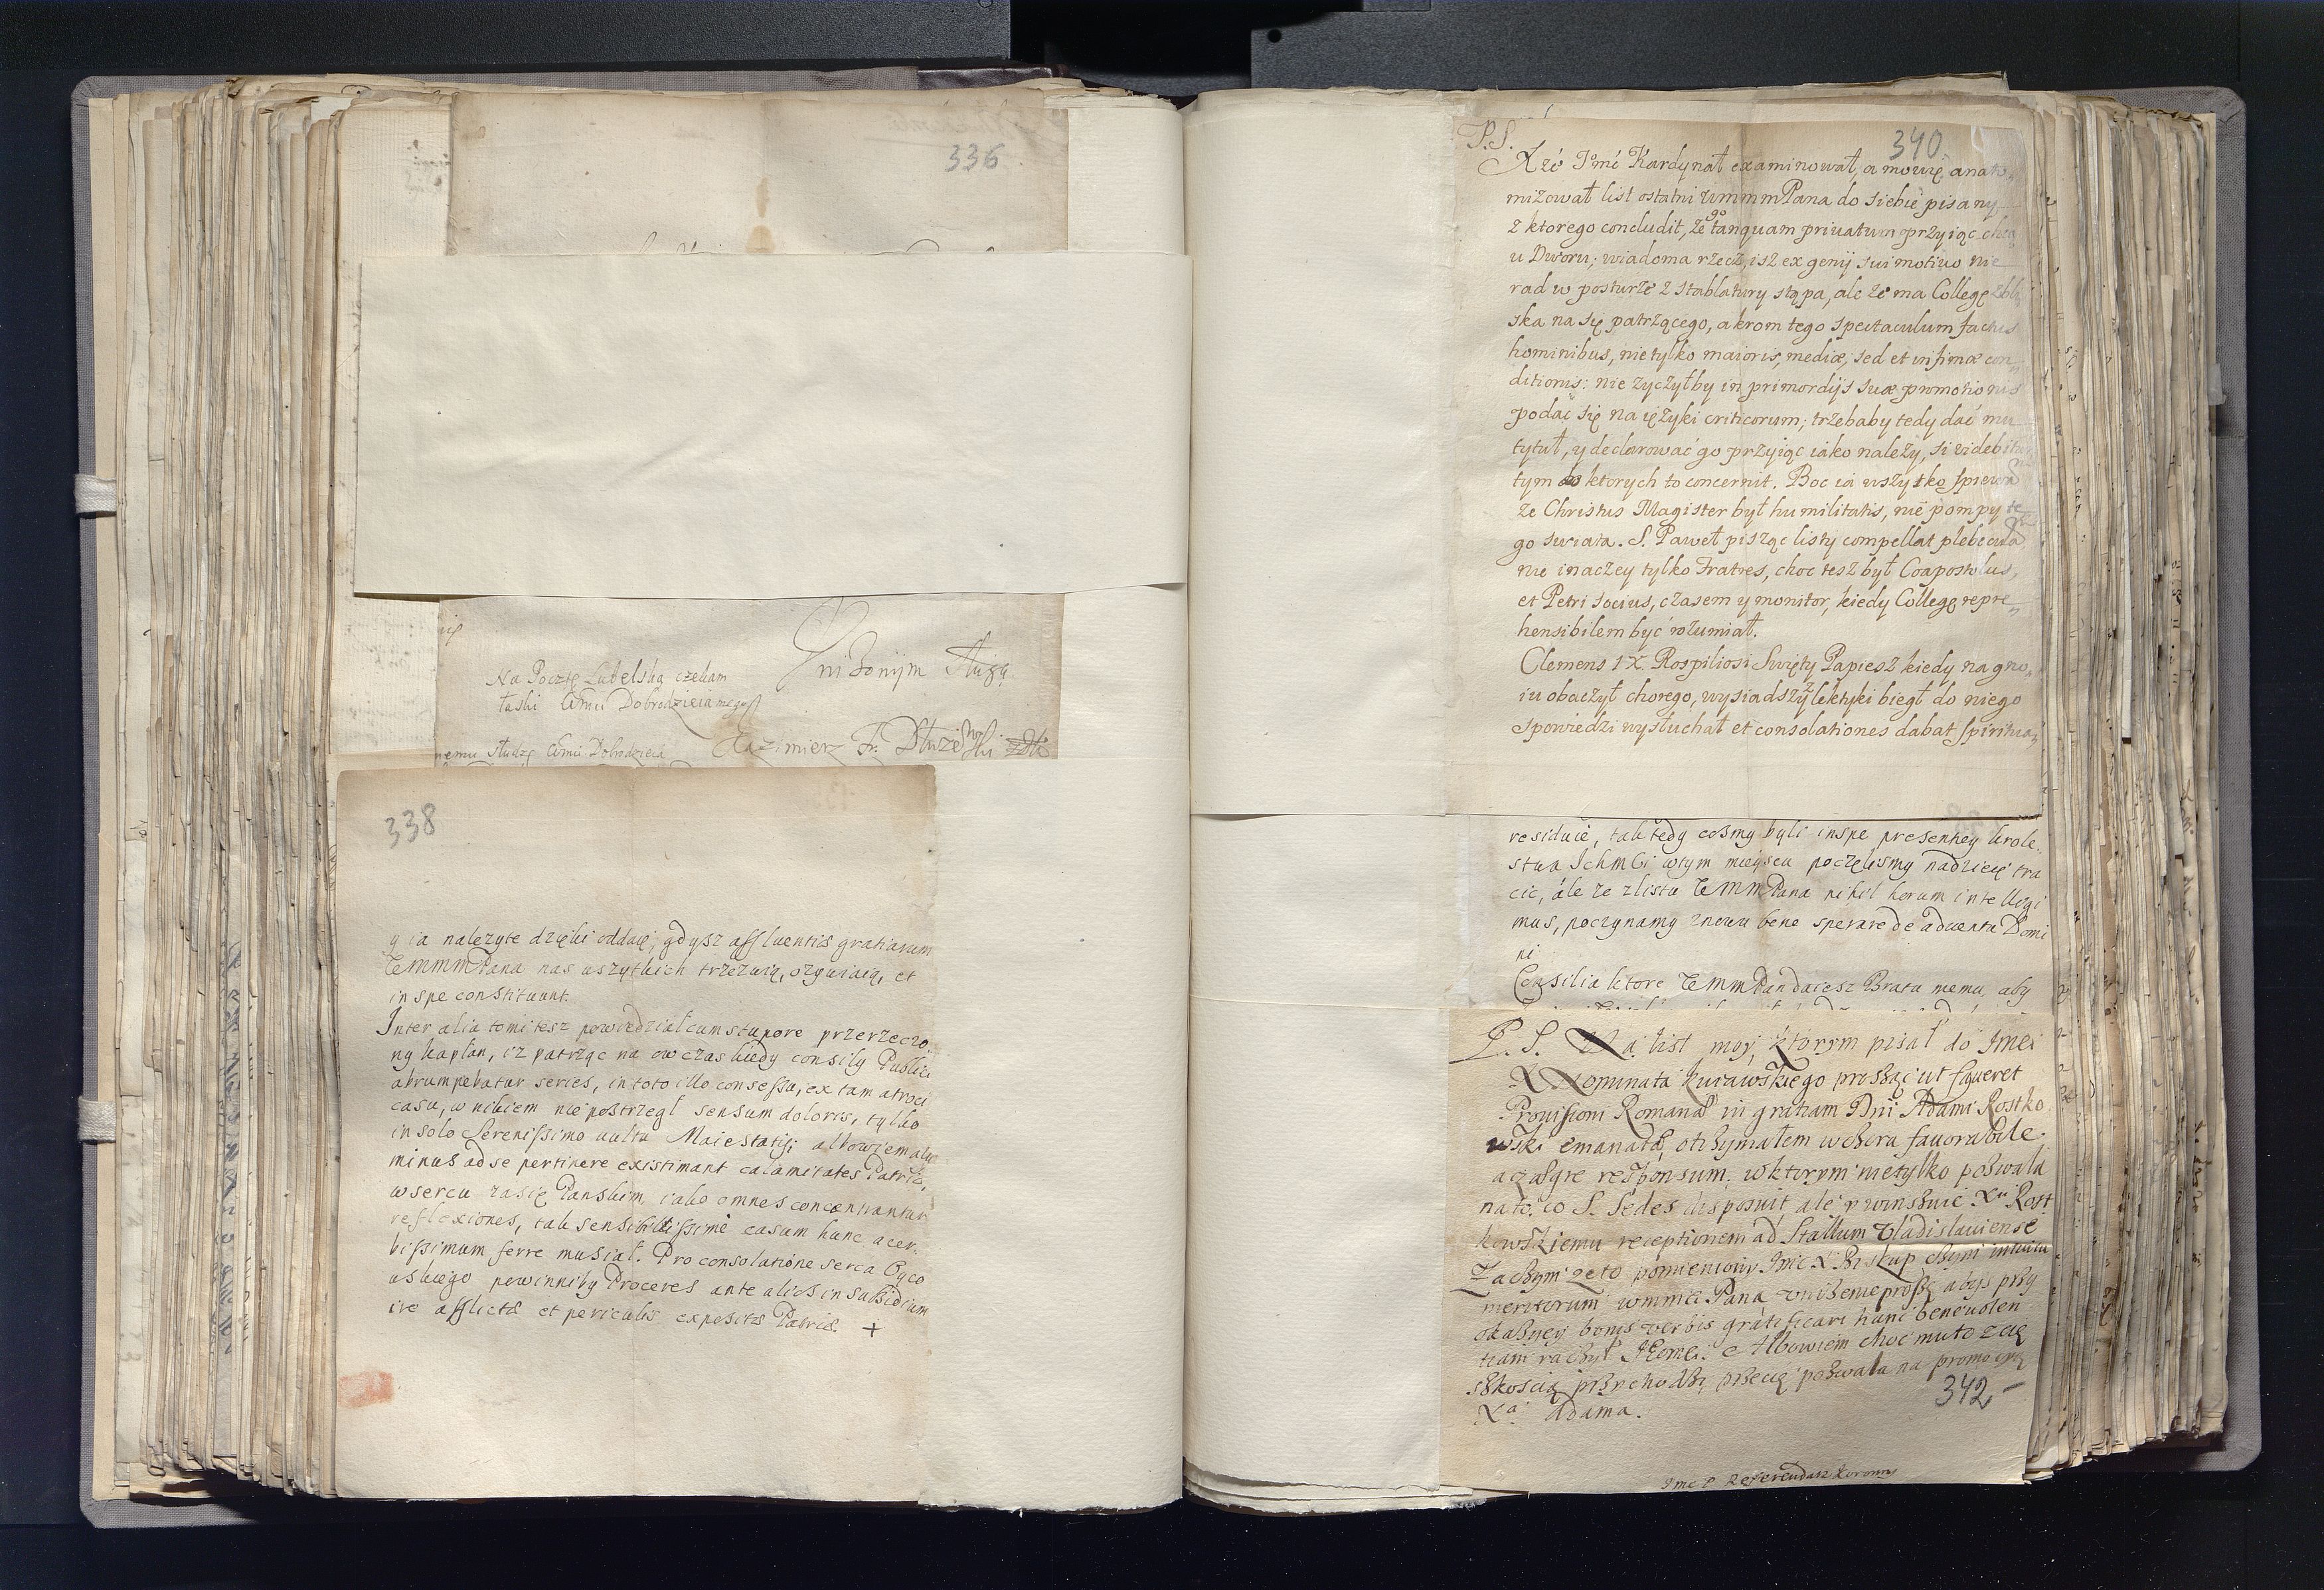 336
Uniżonym Sługą
Na Pocztę Lubelską czekam
łaski
Dobrodzieia
Kazimierz Fr.
338
y ia nalezyte dzięki oddaię, gdysz affluentis gratiarum
WMMMPana nas wszytkich trzezwią, ozywiaią, et
in spe constituunt.
Inter alia to mi tesz powiedział cum stupore przerzeczo
ny kapłan, iz patrząc na ow czas kiedy consily Publici
abrumpebatur series, in toto illo consessu, ex tam atroci
casu, w nikiem nie postrzegł sensum doloris, tylko
in solo Serenissimo vultu Maiestatis; albowiem alij
minus ad se pertinere existimant calamitates Patriæ,
w sercu zasię Panskim, iako omnes concentrantur
reflexiones, tak sensibilissime casum hunc acer-
bissimum ferre musiał. Pro consolatione serca Oyco
wskiego powinniby Proceres ante alios in subsidium
ire afflictæ et periculis expositæ Patriæ. +
340
P.S.
Xże Jmć Kardynał examinował, a mowię anato„
mizował list ostatni WMMMPana do siebie pisany
z ktorego concludit, że go tanquam privatum przyiąc chcą
u Dworu; wiadoma rzecz, isz ex genij sui motivo nie
rad w posturze z stablatury stąpa, ale że ma Collegę zbli
ska na się patrzącego, a krom tego spectaculum factus
hominibus, nie tylko maioris, mediæ, sed et infimæ con„
ditionis: nie zyczyłby in primordijs suæ promotionis
podać się na ięzyki criticorum; trzebaby tedy dać mu
tytuł, y declarować go przyiąc iako nalezy, si videbitur
tym ktorych to concernit. Boc ia wszytko spiewam
ze Christus Magister był humilitatis, nie pompy te„
go swiata. S. Paweł pisząc listy compellat plebeculam
nie inaczey tylko Fratres, choc tesz był Coapostolus,
et Petri socius, czasem y monitor, kiedy Collegę repre„
hensibilem być rozumiał.
Clemens IX Rospiliosi Swięty Papiesz kiedy na gno„
iu obaczył chorego, wysiadszy z lektyki biegł do niego
spowiedzi wysłuchał et consolationes dabat spiritua„
residuie, tak tedy cosmy byli in spe presentiey krole„
stwa Ichmći w tym mieyscu poczęlismy nadzieię tra
cic, ale ze z listu WMMPana nihil horum intelligi
mus, poczynamy znowu bene sperare de adventu Domi
ni
Consilia ktore WMMPan daiesz Bratu memu, aby
P. S. Na list moy, ktorym pisał do Jmći
X Nominata kuiawskiego prosząc ut faveret
Provisioni Romanæ in gratiam Dni Adami Rostko
wski emanatæ, otrzymałem wczora favorabile
ac responsum, w ktorym nie tylko pozwala
na to, co S. Sedes disposuit, ale y winszuie Xu Rost
kowskiemu receptionem ad Stallum Vladislaviense
Za czym ze to pomieniony Jmć X Biskup czyni intuitu
meritorum WMMći Pana, unizenie proszę abys przy
okazyey bonis verbis gratificari hanc benevolen
tiam raczył Albowiem choć mu to z cię
szkoscią przychodzi, przecię pozwala na promocyą
Xa Adama.
342
Jmć P Referendarz koronny